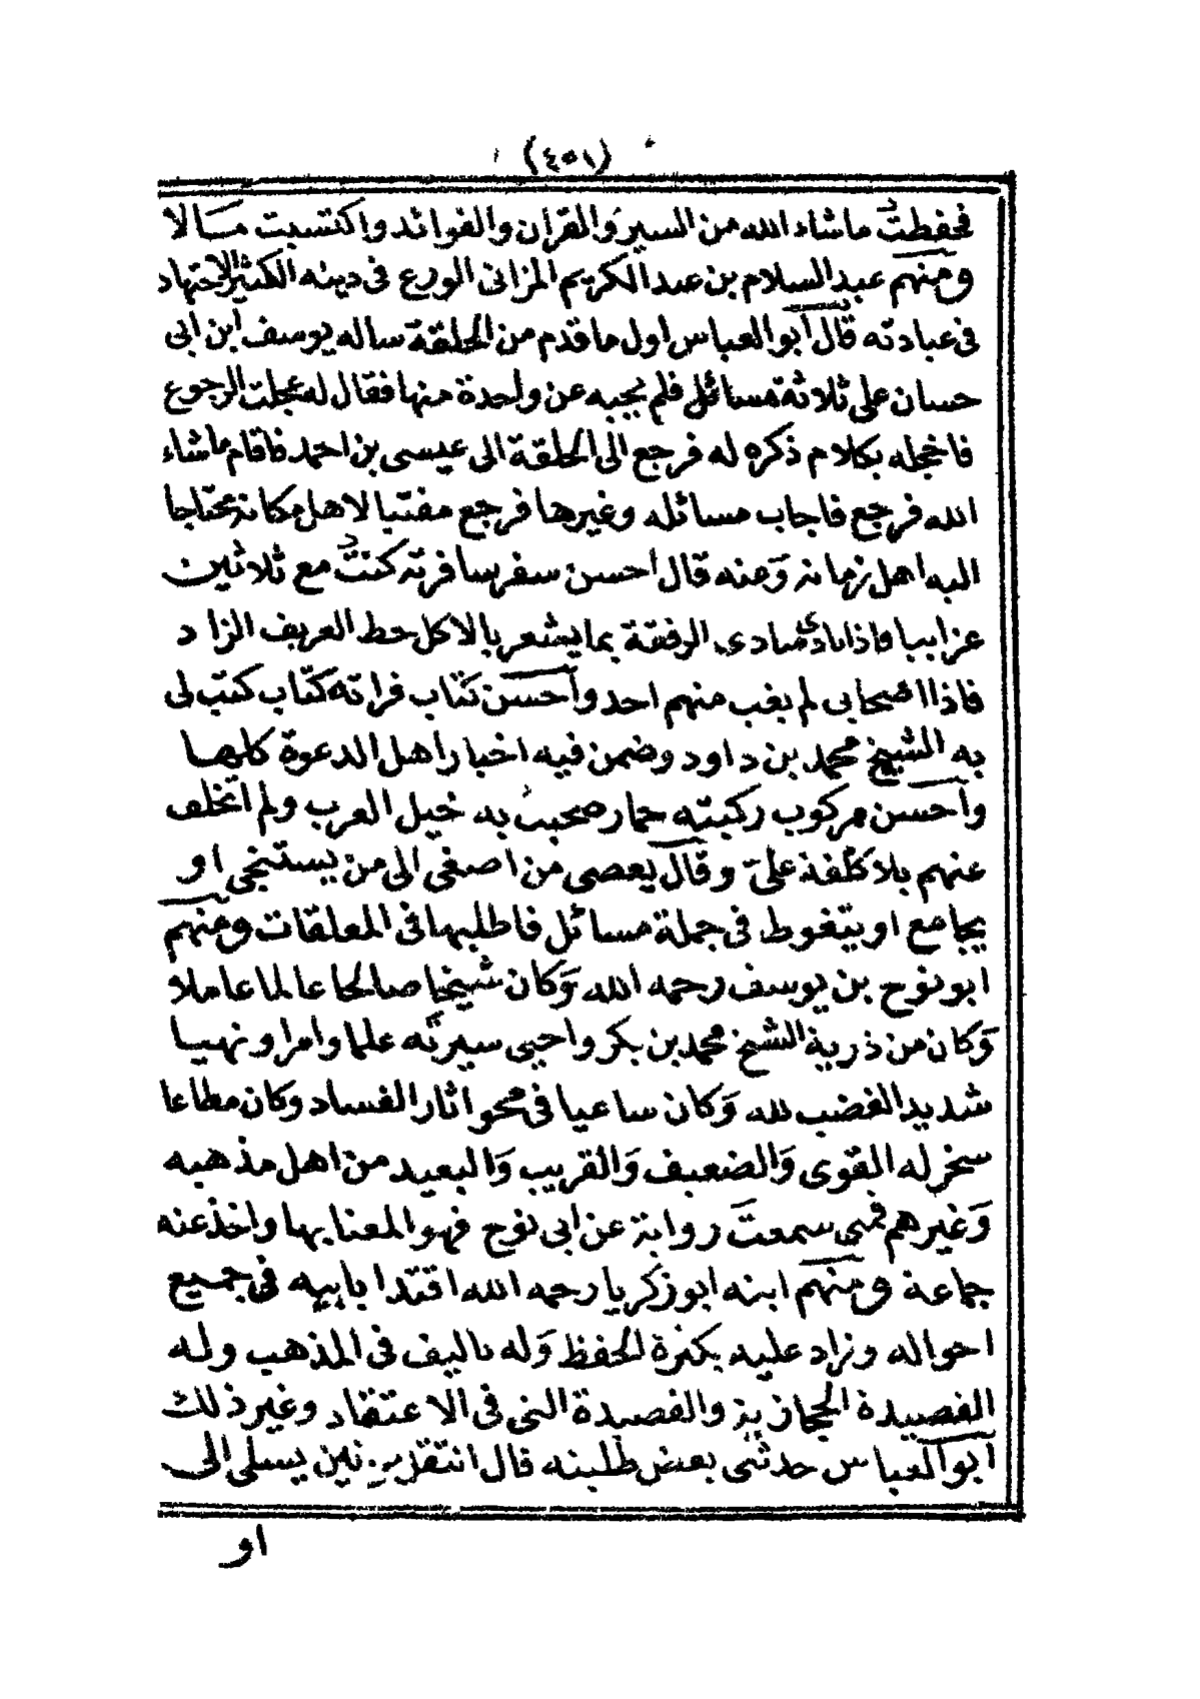 (٤٥١)
فحفظت ماشاء الله من السير والقرآن والفوائد واكتسبت مالا
ومنهم عبد السلام بن عبد الكريم المزاتى الورع فى دينه الكثير الاجتهاد
فى عبادته قال أبو العباس اول ما قدم من الحلقة ساله يوسف ابن ابى
حسان على ثلاثة مسائل فلم يجبه عن واحدة منها فقال له عجلت الرجوع
فاخجله بكلام ذكره له فرجع الى الحلقة الى عيسى بن احمد فاقام ماشاء
الله فرجع فاجاب مسائله وغيرها فرجع مفتيا لاهل مكانه محتاجا
اليه اهل زمانه وعنه قال أحسن سفر سافرته كنت مع ثلاثين
عزابيا فاذا نادى منادى الرفقة بما يشعر بالاكل حط العريف الزاد
فاذا اصحابى لم يغب منهم احد وأحسن كتاب قراته كتاب كتب لى
به الشيخ محمد بن داود وضمن فيه اخبار اهل الدعوة كلها
وأحسن مركوب ركبته حمار صحبت به خيل العرب ولم اتخلف
عنهم بلا كلفة على وقال يعصى من اصغى الى من يستنجى او
يجامع او يتغوط فى جملة مسائل فاطلبها فى المعلقات ومنهم
ابو نوح بن يوسف رحمه الله وكان شيخا صالحا عالما عاملا
وكان من ذرية الشيخ محمد بن بكر واحيى سيرته علما وامرا ونهيا
شديد الغضب لله وكان ساعيا فى محو اثار الفساد وكان مطاعا
سخر له القوى والضعيف والقريب والبعيد من اهل مذهبه
وغيرهم فمتى سمعت رواية عن ابى نوح فهو المعنا بها واخذ عنه
جماعة ومنهم ابنه ابو زكريا رحمه الله اقتدا بابيه فى جميع
احواله وزاد عليه بكثرة الحفظ وله تاليف فى المذهب وله
القصيدة الحجازية والقصيدة التى فى الاعتقاد وغير ذلك
أبو العباس حدثنى بعض طلبته قال انتقل يسلى الى
او